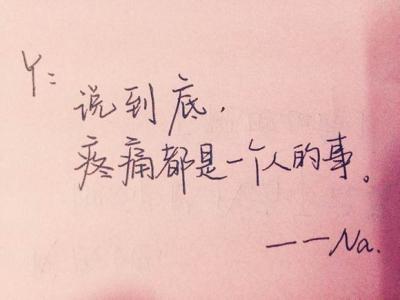 Y：
说到底，
疼痛都是一个人的事。
——Na.